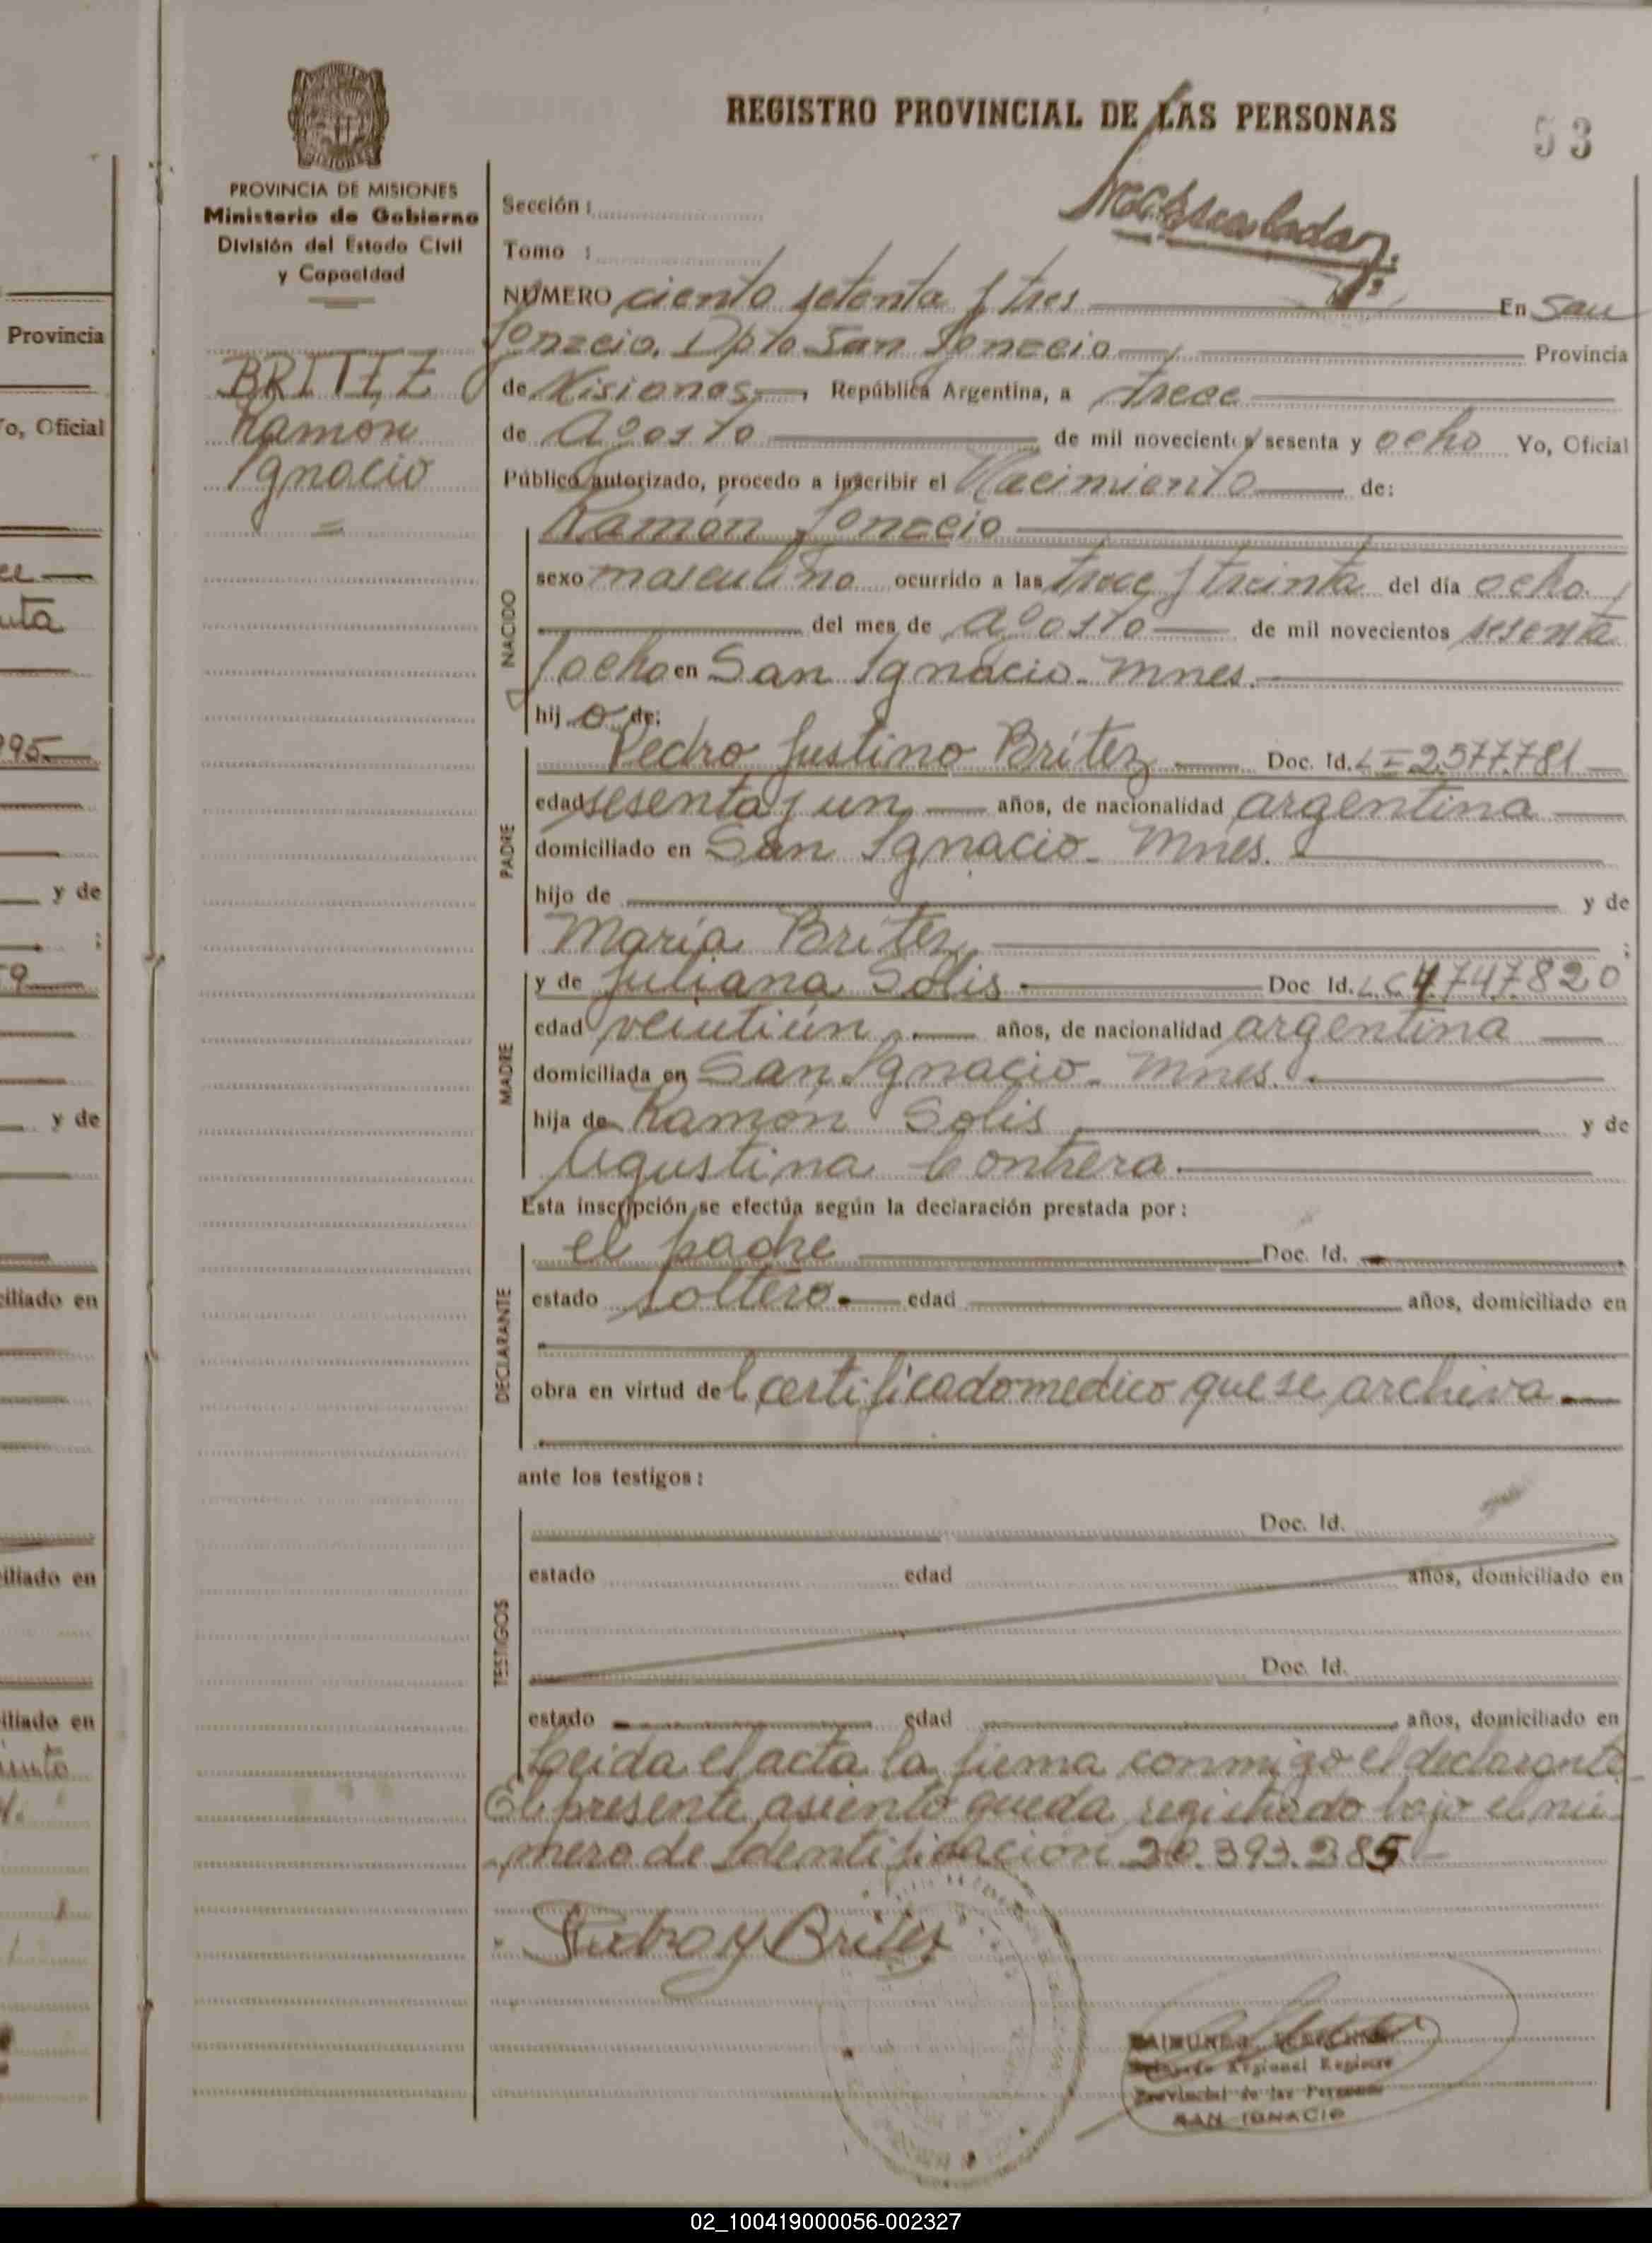 REGISTRO PROVINCIAL DE LAS PERSONAS
53
PROVINCIA DE MISIONES
Ministerio de Gobierno
División del Estado Civil
y Capacidad
BRITEZ
Ramón
Ignacio
Sección :
Tomo :
NUMERO ciento setenta y tres En San
Ignacio, Dpto San Ignacio Provincia
de Misiones, República Argentina, a trece
de Agosto de mil novecientos sesenta y ocho Yo, Oficial
Público autorizado, procedo a inscribir el Nacimiento de:
Ramón Ignacio
NACIDO
sexo masculino ocurrido a las trece y treinta del día ocho
del mes de Agosto de mil novecientos sesenta
y ocho en San Ignacio - Mnes.
hij o de:
PADRE
Pedro Justino Britez Doc. Id. LE 2577781
edad sesenta y un años, de nacionalidad argentina
domiciliado en San Ignacio - Mnes.
hijo de y de
María Britez ;
MADRE
y de Juliana Solis Doc Id. LC 4747820
edad veintiún años, de nacionalidad argentina
domiciliada en San Ignacio - Mnes.
hija de Ramón Solis y de
Agustina Contrera.
Esta inscripción se efectúa según la declaración prestada por:
DECLARANTE
el padre Doc. Id.
estado soltero edad años, domiciliado en
obra en virtud del certificado medico que se archiva
ante los testigos:
TESTIGOS
Doc. Id.
estado edad años, domiciliado en
Doc. Id.
estado edad años, domiciliado en
Leida el acta la firma conmigo el declarante
El presente asiento queda registrado bajo el nú-
mero de Identificación 20.393.285
Pedro J Britez
Delegado Regional Registro
Provincial de las Personas
SAN IGNACIO
Provincia
Yo, Oficial
y de
y de
ciliado en
ciliado en
ciliado en
02_100419000056-002327